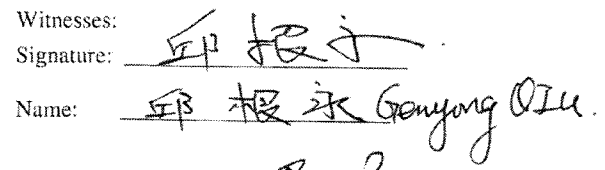 Witnesses:
Signature: 邱根永
Name: 邱根永 Genyong QIU.